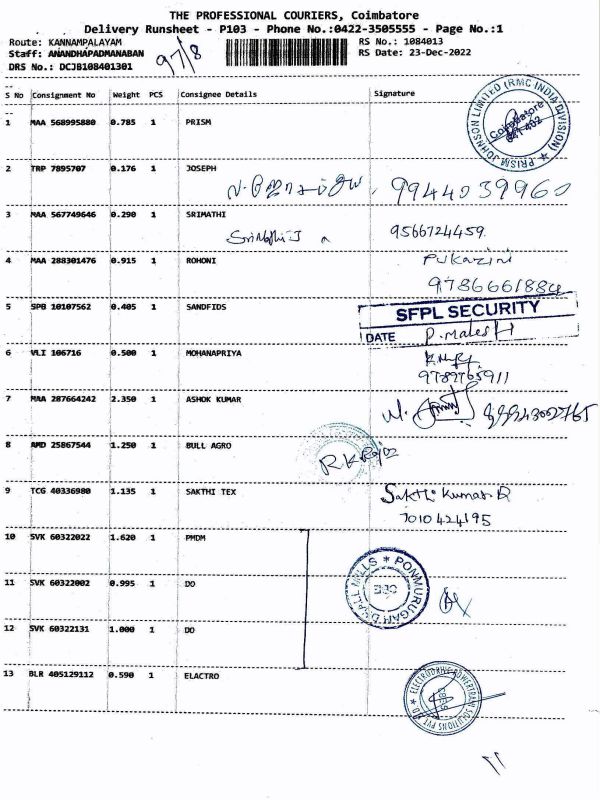 THE PROFESSIONAL COURIERS, Coimbatore
Delivery Runsheet - P103 - Phone No.:0422-3505555 - Page No.:1
Route: KANNAMPALAYAM RS No.: 1084013
Staff: ANANDHAPADMANABAN RS Date: 23-Dec-2022
DRS No.: DCJB108401301
97/8
S No Consignment No Weight PCS Consignee Details Signature
1 MAA 568995880 0.785 1 PRISM
PRISM JOHNSON LIMITED (RMC INDIA DIVISION)
Coimbatore
641 402
2 TRP 7895707 0.176 1 JOSEPH
9944039960
3 MAA 567749646 0.290 1 SRIMATHI
Srimathi J 9566724459
4 MAA 288301476 0.915 1 ROHONI
Pukazini
9786661884
5 SPB 10107562 0.405 1 SANDFIDS
SFPL SECURITY
DATE P. Malesh
6 VLI 106716 0.500 1 MOHANAPRIYA
9789765911
7 MAA 287664242 2.350 1 ASHOK KUMAR
8 AMD 25867544 1.250 1 BULL AGRO
9 TCG 40336980 1.135 1 SAKTHI TEX
Sakthi Kumar R
7010424195
10 SVK 60322022 1.620 1 PMDM
11 SVK 60322002 0.995 1 DO
12 SVK 60322131 1.000 1 DO
13 BLR 405129112 0.590 1 ELACTRO
11